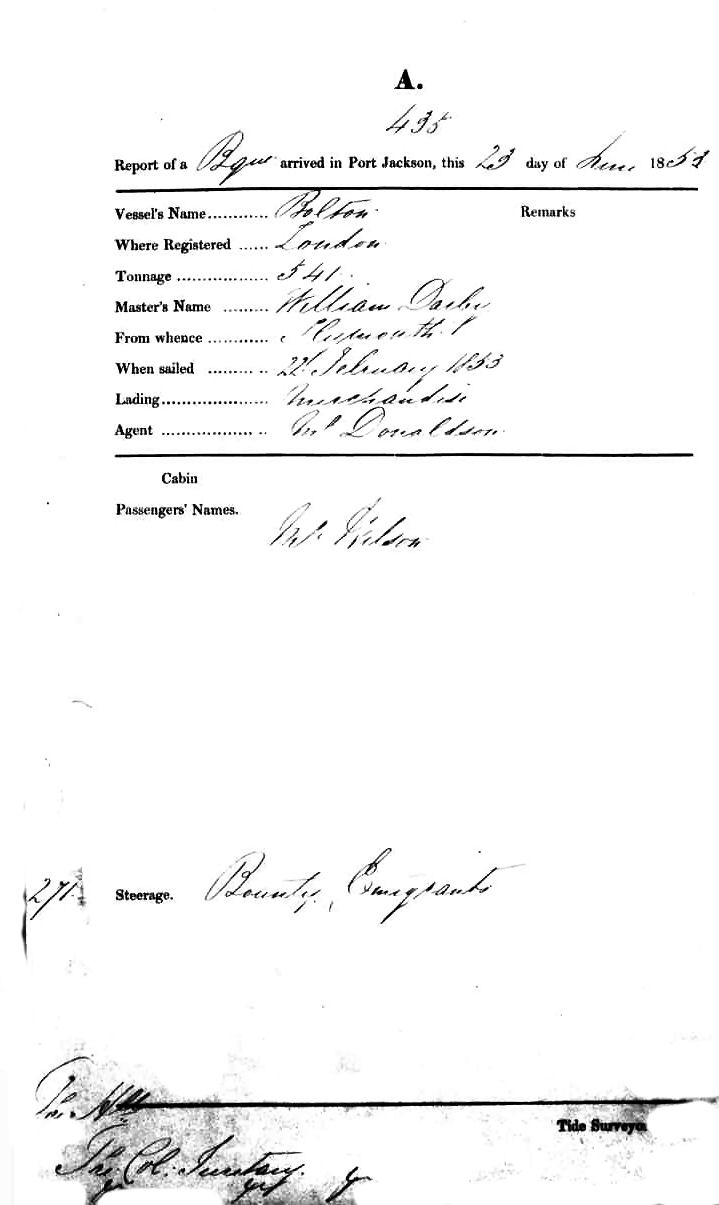 A.
435
Report of a Bque arrived in Port Jackson, this 23 day of June 1853
Vessel's Name............ Bolton
Remarks
Where Registered ...... London
Tonnage .................. 541
Master's Name ......... William Darby
From whence ............ Plymouth
When sailed ......... .. 22d February 1853
Lading..................... Merchandise
Agent .................. .. Mr Donaldson
Cabin
Passengers' Names.
Mr Wilson
271 Steerage. Bounty Emigrants
Tide Surveyor
The Col. Secretary